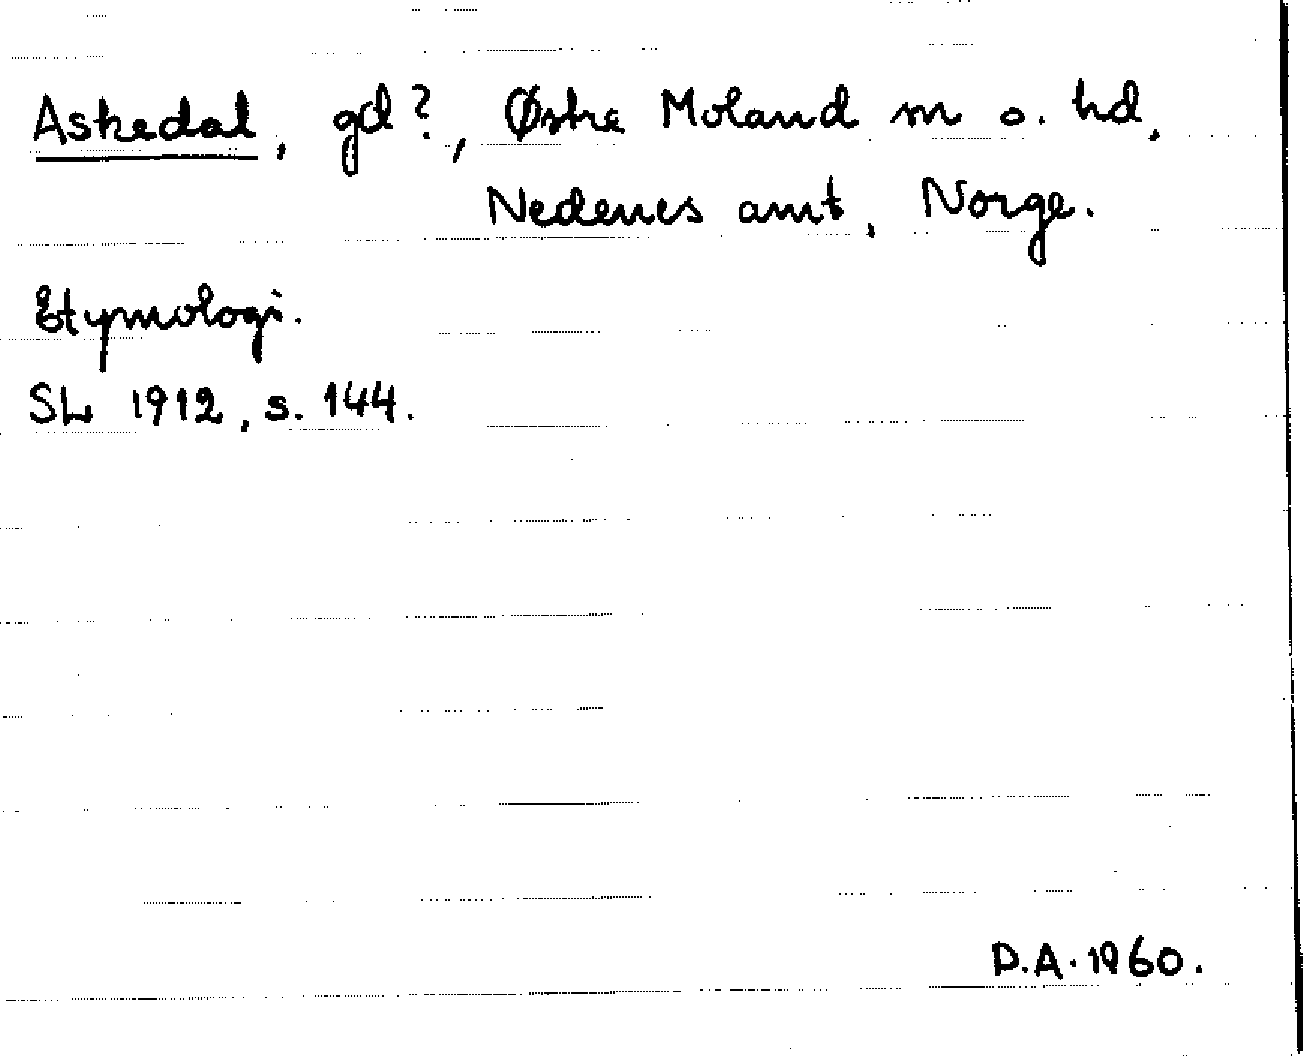 Askedal, gd?, Østre Moland sn o. hd,
Nedenes amt, Norge.
Etymologi.
SL 1912, s. 144.
D.A. 1960.